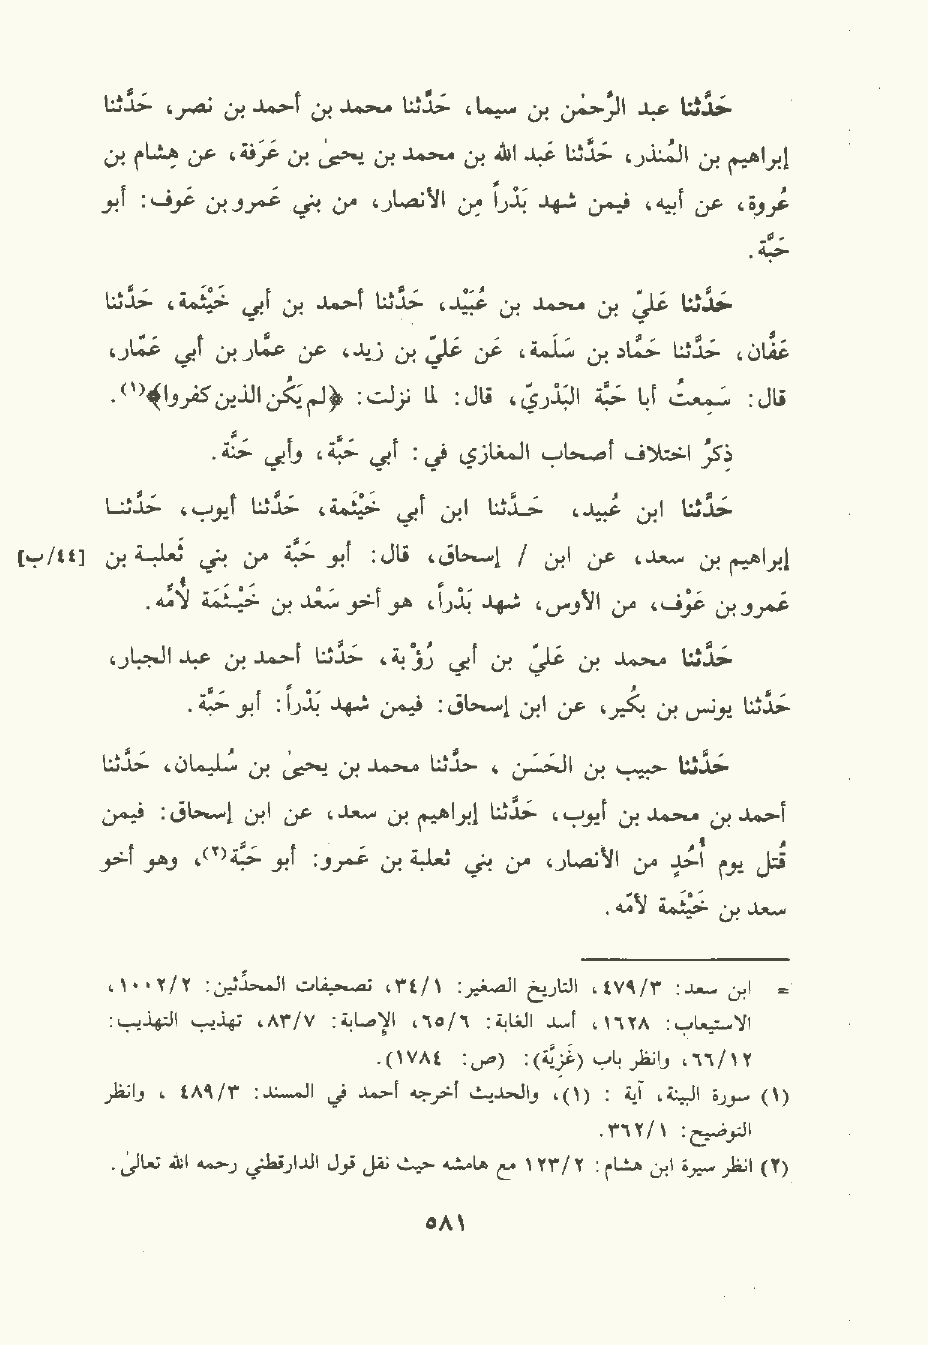 حَدَّثنا عبد الرَّحمٰن بن سيما، حَدَّثنا محمد بن أحمد بن نصر، حَدَّثنا
إبراهيم بن المُنذر، حَدَّثنا عَبد الله بن محمد بن يحيىٰ بن عَرَفة، عن هِشام بن
عُروة، عن أبيه، فيمن شهد بَدْراً مِن الأنصار، من بني عَمرو بن عَوف: أبو
حَبَّة.
حَدَّثنا عَليّ بن محمد بن عُبَيْد، حَدَّثنا أحمد بن أبي خَيْثَمة، حَدَّثنا
عَفَّان، حَدَّثنا حَمَّاد بن سَلَمة، عَن عَليّ بن زيد، عن عمَّار بن أبي عَمَّار،
قال: سَمِعتُ أبا حَبَّة البَدْريّ، قال: لما نزلت: ﴿لم يَكُن الذين كفروا﴾(١).
ذِكرُ اختلاف أصحاب المغازي في: أبي حَبَّة، وأبي حَنَّة.
حَدَّثنا ابن عُبيد، حَدَّثنا ابن أبي خَيْثَمة، حَدَّثنا أيوب، حَدَّثنا
إبراهيم بن سعد، عن ابن / إسحاق، قال: أبو حَبَّة من بني ثَعلبة بن [٤٤/ب]
عَمرو بن عَوْف، من الأوس، شهد بَدْراً، هو أخو سَعْد بن خَيْثَمَة لأُمِّه.
حَدَّثنا محمد بن عَليّ بن أبي رُؤْبة، حَدَّثنا أحمد بن عبد الجبار،
حَدَّثنا يونس بن بكُير، عن ابن إسحاق: فيمن شهد بَدْراً: أبو حَبَّة.
حَدَّثنا حبيب بن الحَسَن ، حدَّثنا محمد بن يحيىٰ بن سُليمان، حَدَّثنا
أحمد بن محمد بن أيوب، حَدَّثنا إبراهيم بن سعد، عن ابن إسحاق: فيمن
قُتل يوم أُحُدٍ من الأنصار، من بني ثعلبة بن عَمرو: أبو حَبَّة(٢)، وهو أخو
سعد بن خَيْثَمة لأمّه.
= ابن سعد: ٤٧٩/٣، التاريخ الصغير: ٣٤/١، تصحيفات المحدِّثين: ١٠٠٢/٢،
الاستيعاب: ١٦٢٨، أسد الغابة: ٦٥/٦، الإصابة: ٨٣/٧، تهذيب التهذيب:
٦٦/١٢، وانظر باب (غَزِيَّة): (ص: ١٧٨٤).
(١) سورة البينة، آية : (١)، والحديث أخرجه أحمد في المسند: ٤٨٩/٣ ، وانظر
التوضيح: ٣٦٢/١.
(٢) انظر سيرة ابن هشام: ١٢٣/٢ مع هامشه حيث نقل قول الدارقطني رحمه الله تعالىٰ.
٥٨١